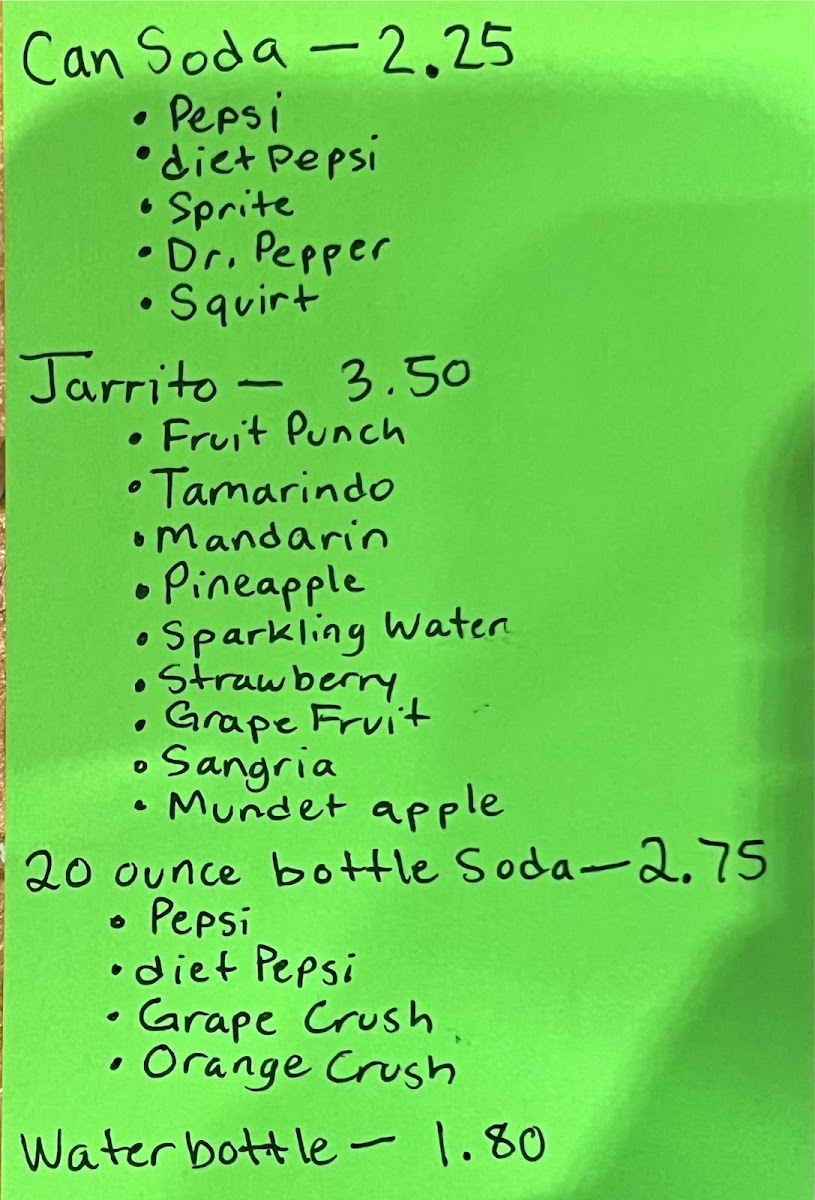 Can Soda — 2.25
• Pepsi
• diet Pepsi
• Sprite
• Dr. Pepper
• Squirt
Jarrito — 3.50
• Fruit Punch
• Tamarindo
• Mandarin
• Pineapple
• Sparkling Water
• Strawberry
• Grape Fruit
• Sangria
• Mundet apple
20 ounce bottle Soda — 2.75
• Pepsi
• diet Pepsi
• Grape Crush
• Orange Crush
Water bottle — 1.80